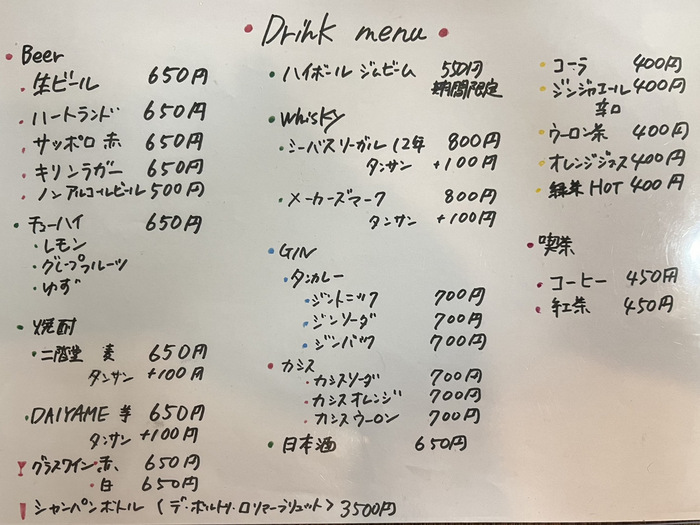 Drink menu
Beer
生ビール 650円
ハートランド 650円
サッポロ 赤 650円
キリンラガー 650円
ノンアルコールビール 500円
チューハイ 650円
レモン
グレープフルーツ
ゆず
焼酎
二階堂 麦 650円
タンサン +100円
DAIYAME 芋 650円
タンサン +100円
グラスワイン 赤、 650円
白 650円
シャンパンボトル (デ・ボルトリ・ロリマーブリュット) 3500円
ハイボール ジムビーム 550円
期間限定
Whisky
シーバスリーガル 12年 800円
タンサン +100円
メーカーズマーク 800円
タンサン +100円
GIN
タンカレー
ジントニック 700円
ジンソーダ 700円
ジンバック 700円
カシス
カシスソーダ 700円
カシスオレンジ 700円
カシスウーロン 700円
日本酒 650円
コーラ 400円
ジンジャエール 400円
辛口
ウーロン茶 400円
オレンジジュース 400円
緑茶 HOT 400円
喫茶
コーヒー 450円
紅茶 450円